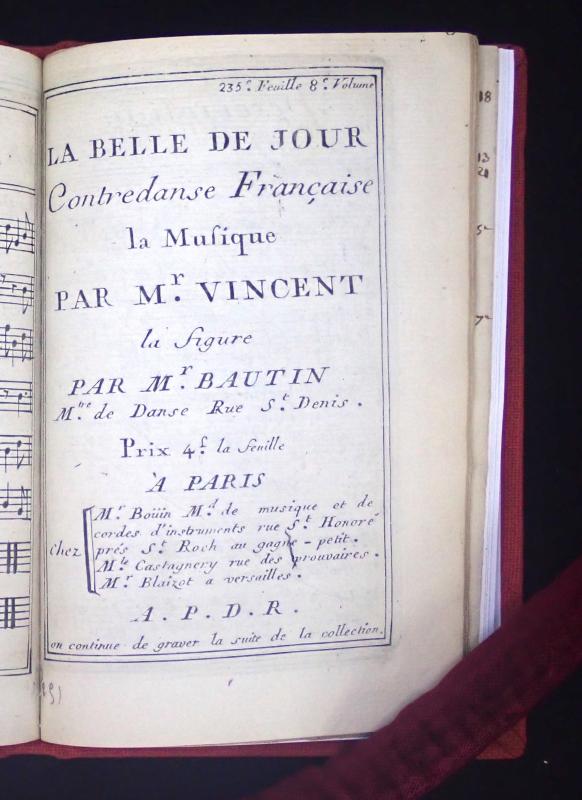 235.e Feuille 8.e Volume
LA BELLE DE JOUR
Contredanse Française
la Musique
PAR M.r VINCENT
la figure
PAR M.r BAUTIN
M.tre de Danse Rue S.t Denis.
Prix 4.s la feuille
À PARIS
Chez
M.r Boüin M.d de musique et de
cordes d'instruments rue S.t Honoré
prés S.t Roch au gagne-petit.
M.lle Castagnery rue des prouvaires.
M.r Blaizot a versailles.
A. P. D. R.
on continue de graver la suite de la collection.
18
13
21
5
7